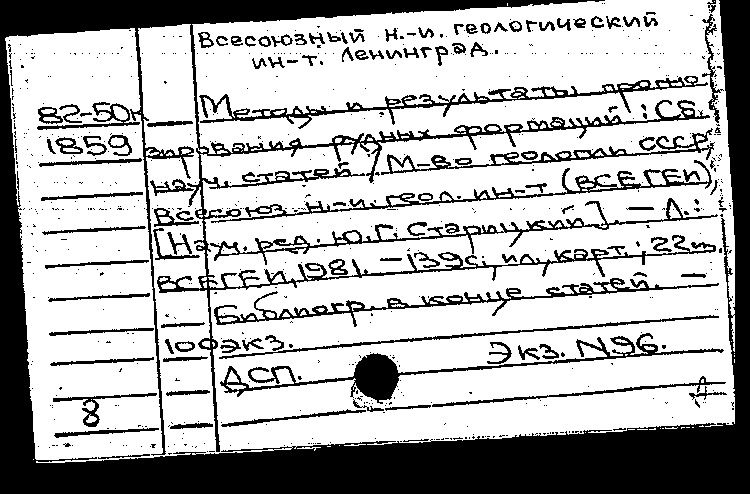 Всесоюзный н.-и. геологический
ин-т. Ленинград.
82-50к Методы и результаты прогно-
1859 зирования рудных формаций: Сб.
науч. статей / М-во геологии СССР,
Всесоюз. н.-и. геол. ин-т (ВСЕГЕИ);
[Науч. ред. Ю.Г. Старицкий]. – Л.:
ВСЕГЕИ, 1981. – 139с.; ил., карт.; 22см.
Библиогр. в конце статей. –
100экз.
Экз. N96.
ДСП.
8